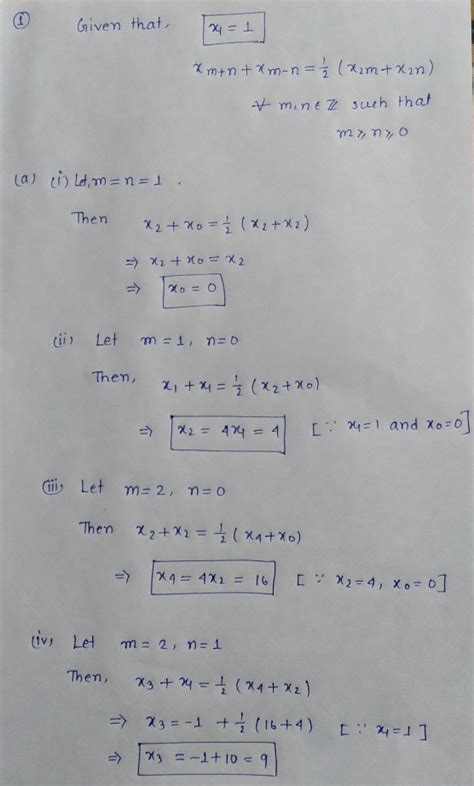 ① Given that, x₁ = 1
xₘ₊ₙ + xₘ₋ₙ = 1/2 (x₂ₘ + x₂ₙ)
∀ m,n ∈ ℤ such that
m ⩾ n ⩾ 0
(a) (i) Let, m = n = 1 .
Then x₂ + x₀ = 1/2 (x₂ + x₂)
⇒ x₂ + x₀ = x₂
⇒ x₀ = 0
(ii) Let m = 1, n = 0
Then, x₁ + x₁ = 1/2 (x₂ + x₀)
⇒ x₂ = 4x₁ = 4 [∵ x₁ = 1 and x₀ = 0]
(iii) Let m = 2, n = 0
Then x₂ + x₂ = 1/2 (x₄ + x₀)
⇒ x₄ = 4x₂ = 16 [∵ x₂ = 4, x₀ = 0]
(iv) Let m = 2, n = 1
Then, x₃ + x₁ = 1/2 (x₄ + x₂)
⇒ x₃ = -1 + 1/2 (16 + 4) [∵ x₁ = 1]
⇒ x₃ = -1 + 10 = 9